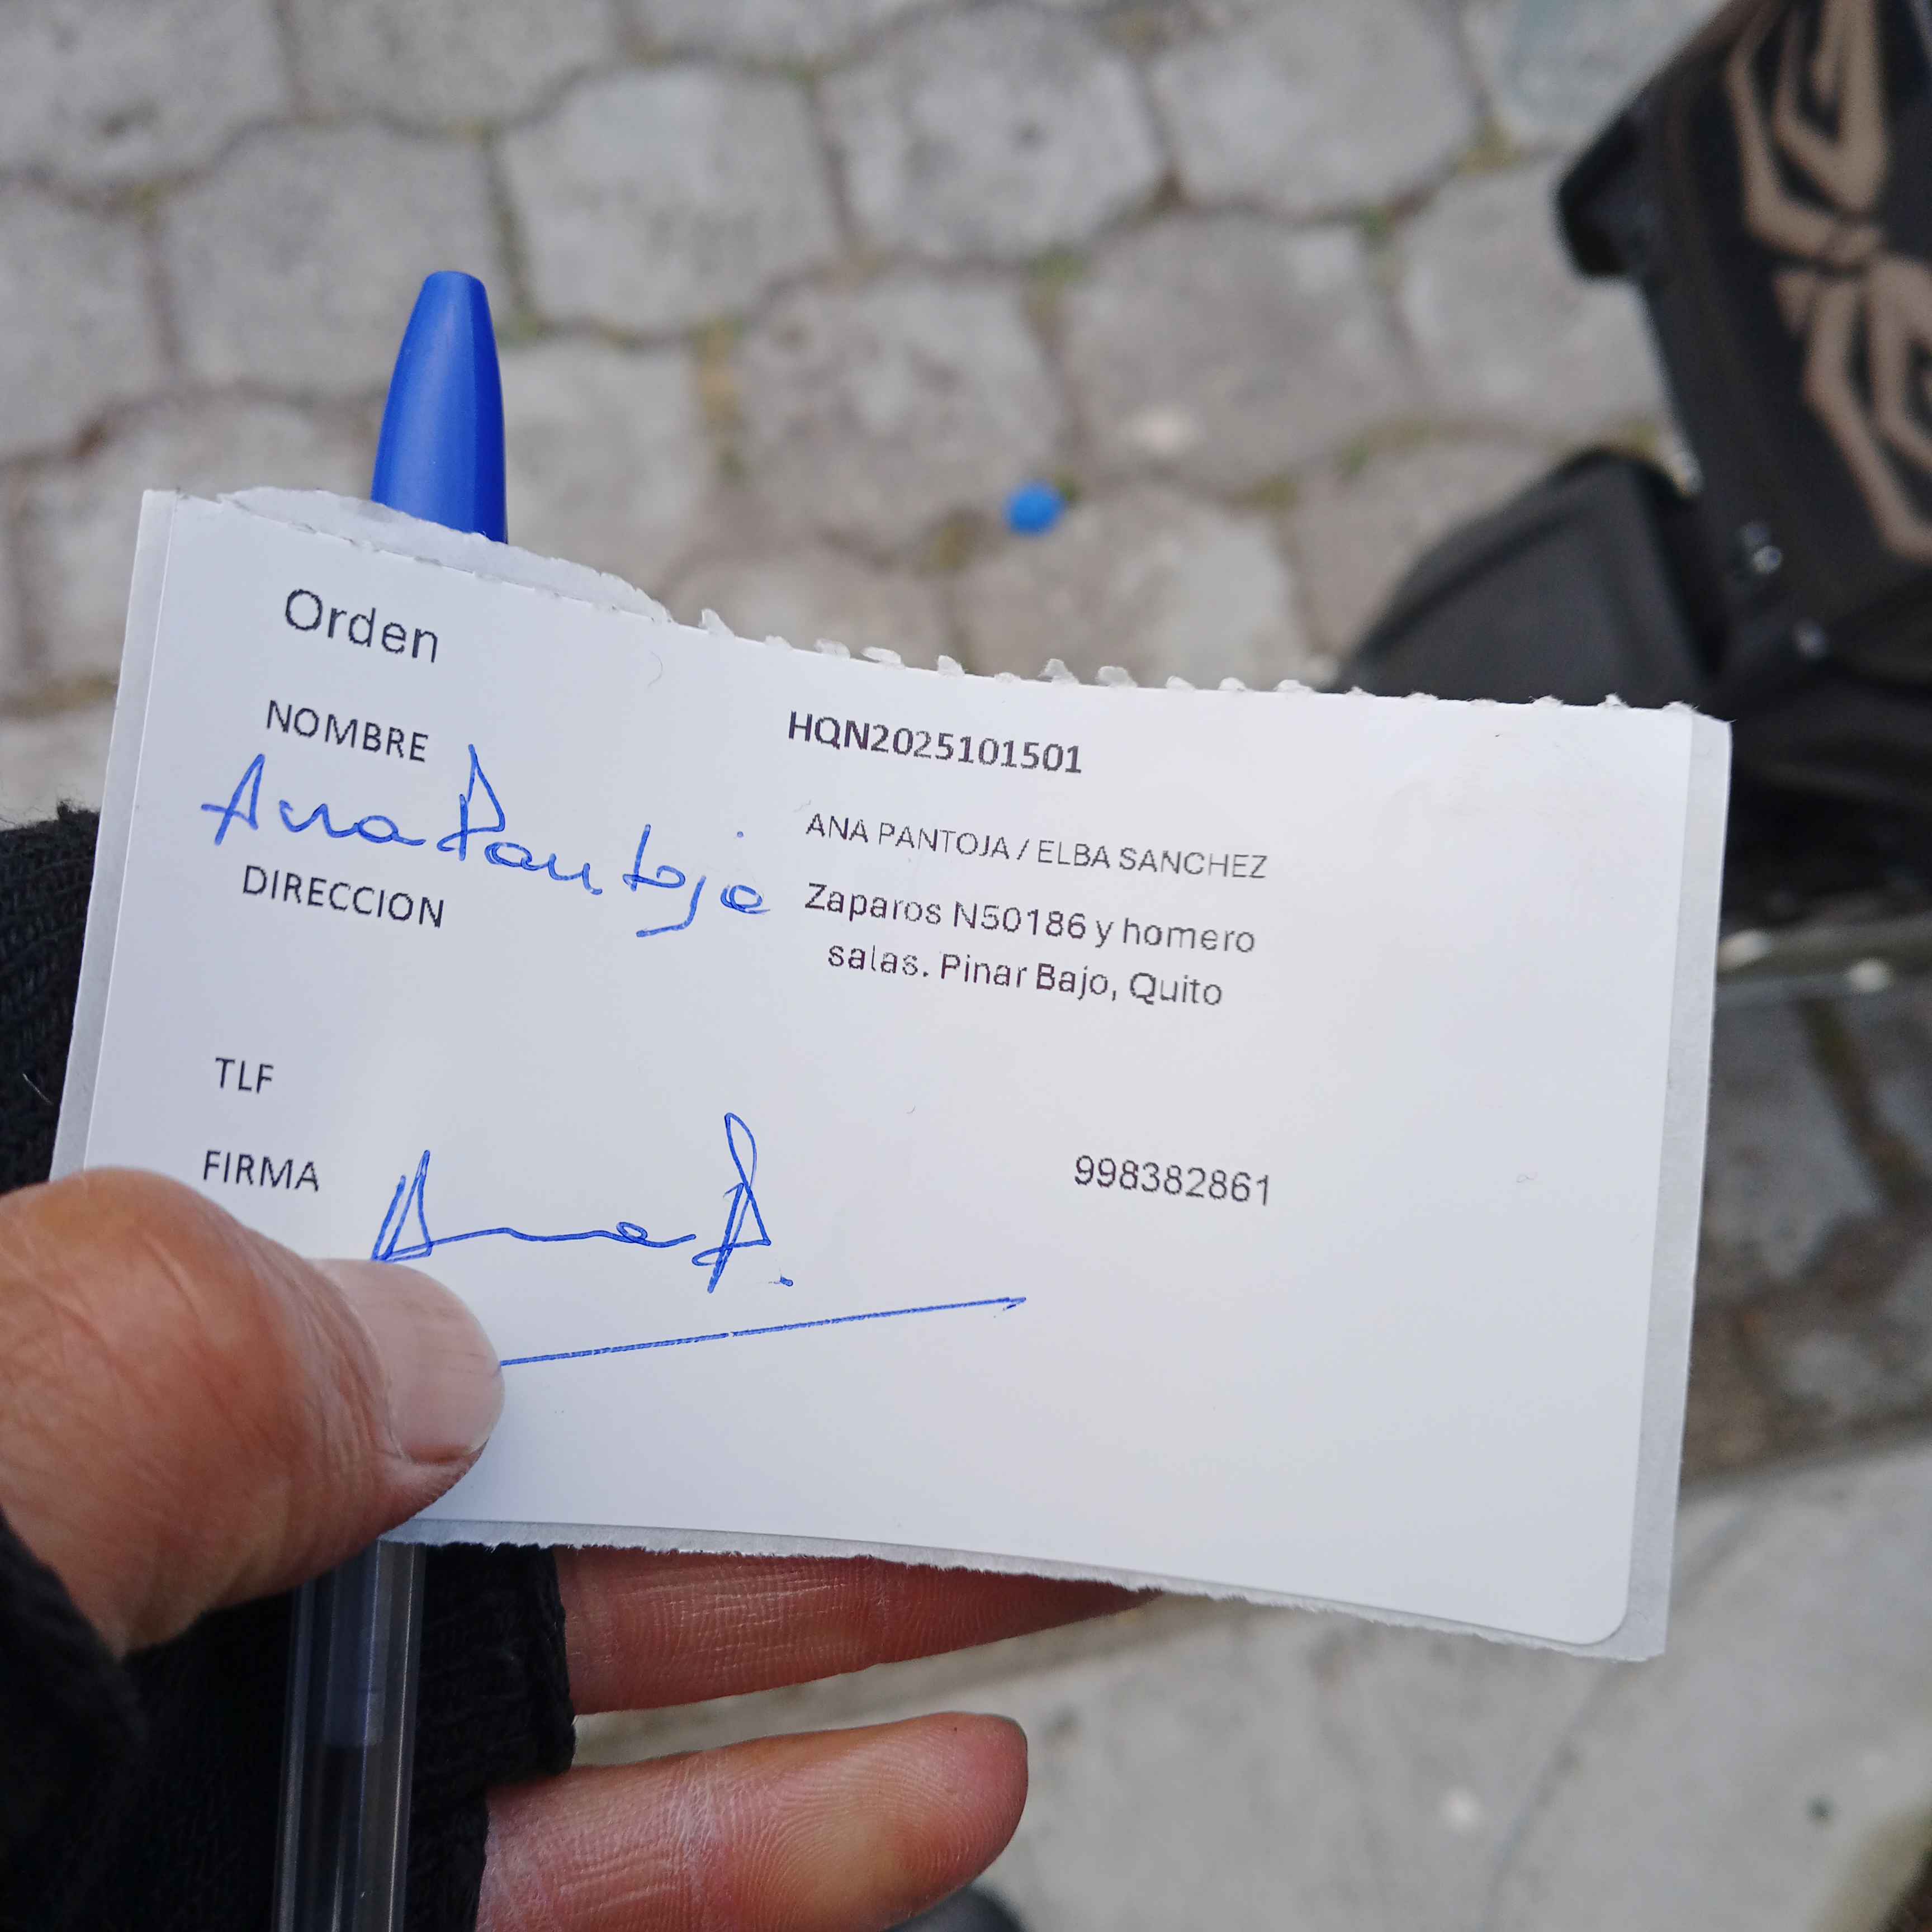 Orden
HQN2025101501
NOMBRE
ANA PANTOJA / ELBA SANCHEZ
Ana Pantoja
DIRECCION
Zaparos N50186 y homero
salas. Pinar Bajo, Quito
TLF
998382861
FIRMA
Ana P.